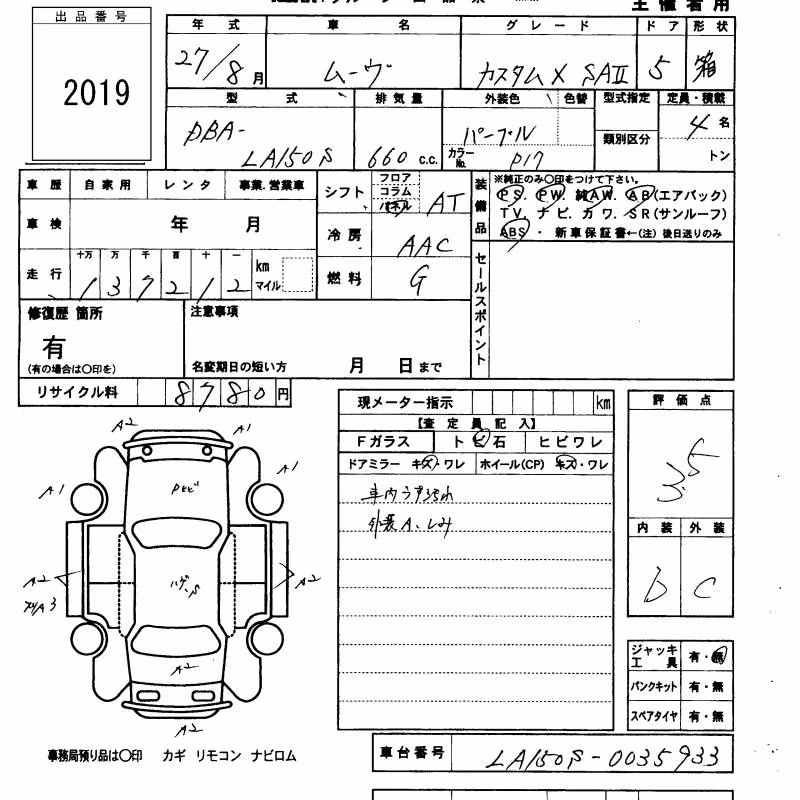 主催者用
出品番号
2019
年式 車名 グレード ドア 形状
27/8月 ムーヴ カスタムX SAⅡ 5 箱
型式 排気量 外装色 色替 型式指定 定員・積載
DBA-
LA150S 660 c.c. パープル カラーNo. P17 類別区分 4名
トン
車歴 自家用 レンタ 事業.営業車
車検 年 月
走行 十万 万 千 百 十 一
137212 km マイル
シフト フロア コラム パネル AT
冷房 AAC
燃料 G
装備品
※純正のみ〇印をつけて下さい。
PS. PW. 純AW. AB(エアバック)
TV. ナビ. カワ. SR(サンルーフ)
ABS ・ 新車保証書←(注) 後日送りのみ
セールスポイント
修復歴 箇所
有
(有の場合は〇印を)
注意事項
名変期日の短い方 月 日まで
リサイクル料 8780円
現メーター指示 km
【査定員記入】
Fガラス トビ石 ヒビワレ
ドアミラー キズ・ワレ ホイール(CP) キズ・ワレ
車内うすヨゴレ
外装A、しみ
評価点
3.5
内装 外装
b C
ジャッキ工具 有・無
パンクキット 有・無
スペアタイヤ 有・無
A2 A1
A1
A1
Pトビ
A2 A2
A3
ハゲ.S
A2
A2
事務局預り品は〇印 カギ リモコン ナビロム
車台番号 LA150S-0035933